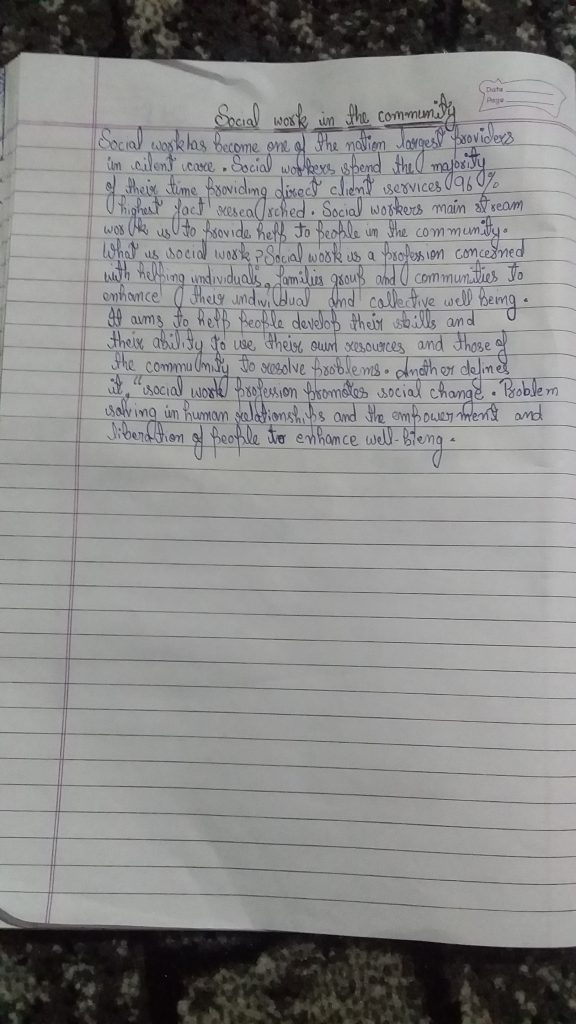 Date
Page
Social work in the community
Social work has become one of the nation largest providers
in cilent care. Social workers spend the majority
of their time providing direct client services 96%
highest fact researched. Social workers main stream
work is to provide help to people in the community.
What is social work? Social work is a profession concerned
with helping individuals, families group and communities to
enhance their individual and collective well being.
It aims to help people develop their skills and
their ability to use their own resources and those of
the commulnity to resolve problems. Another defines
it, "social work profession promotes social change. Problem
solving in human relationships and the empowerment and
liberation of people to enhance well-bieng.